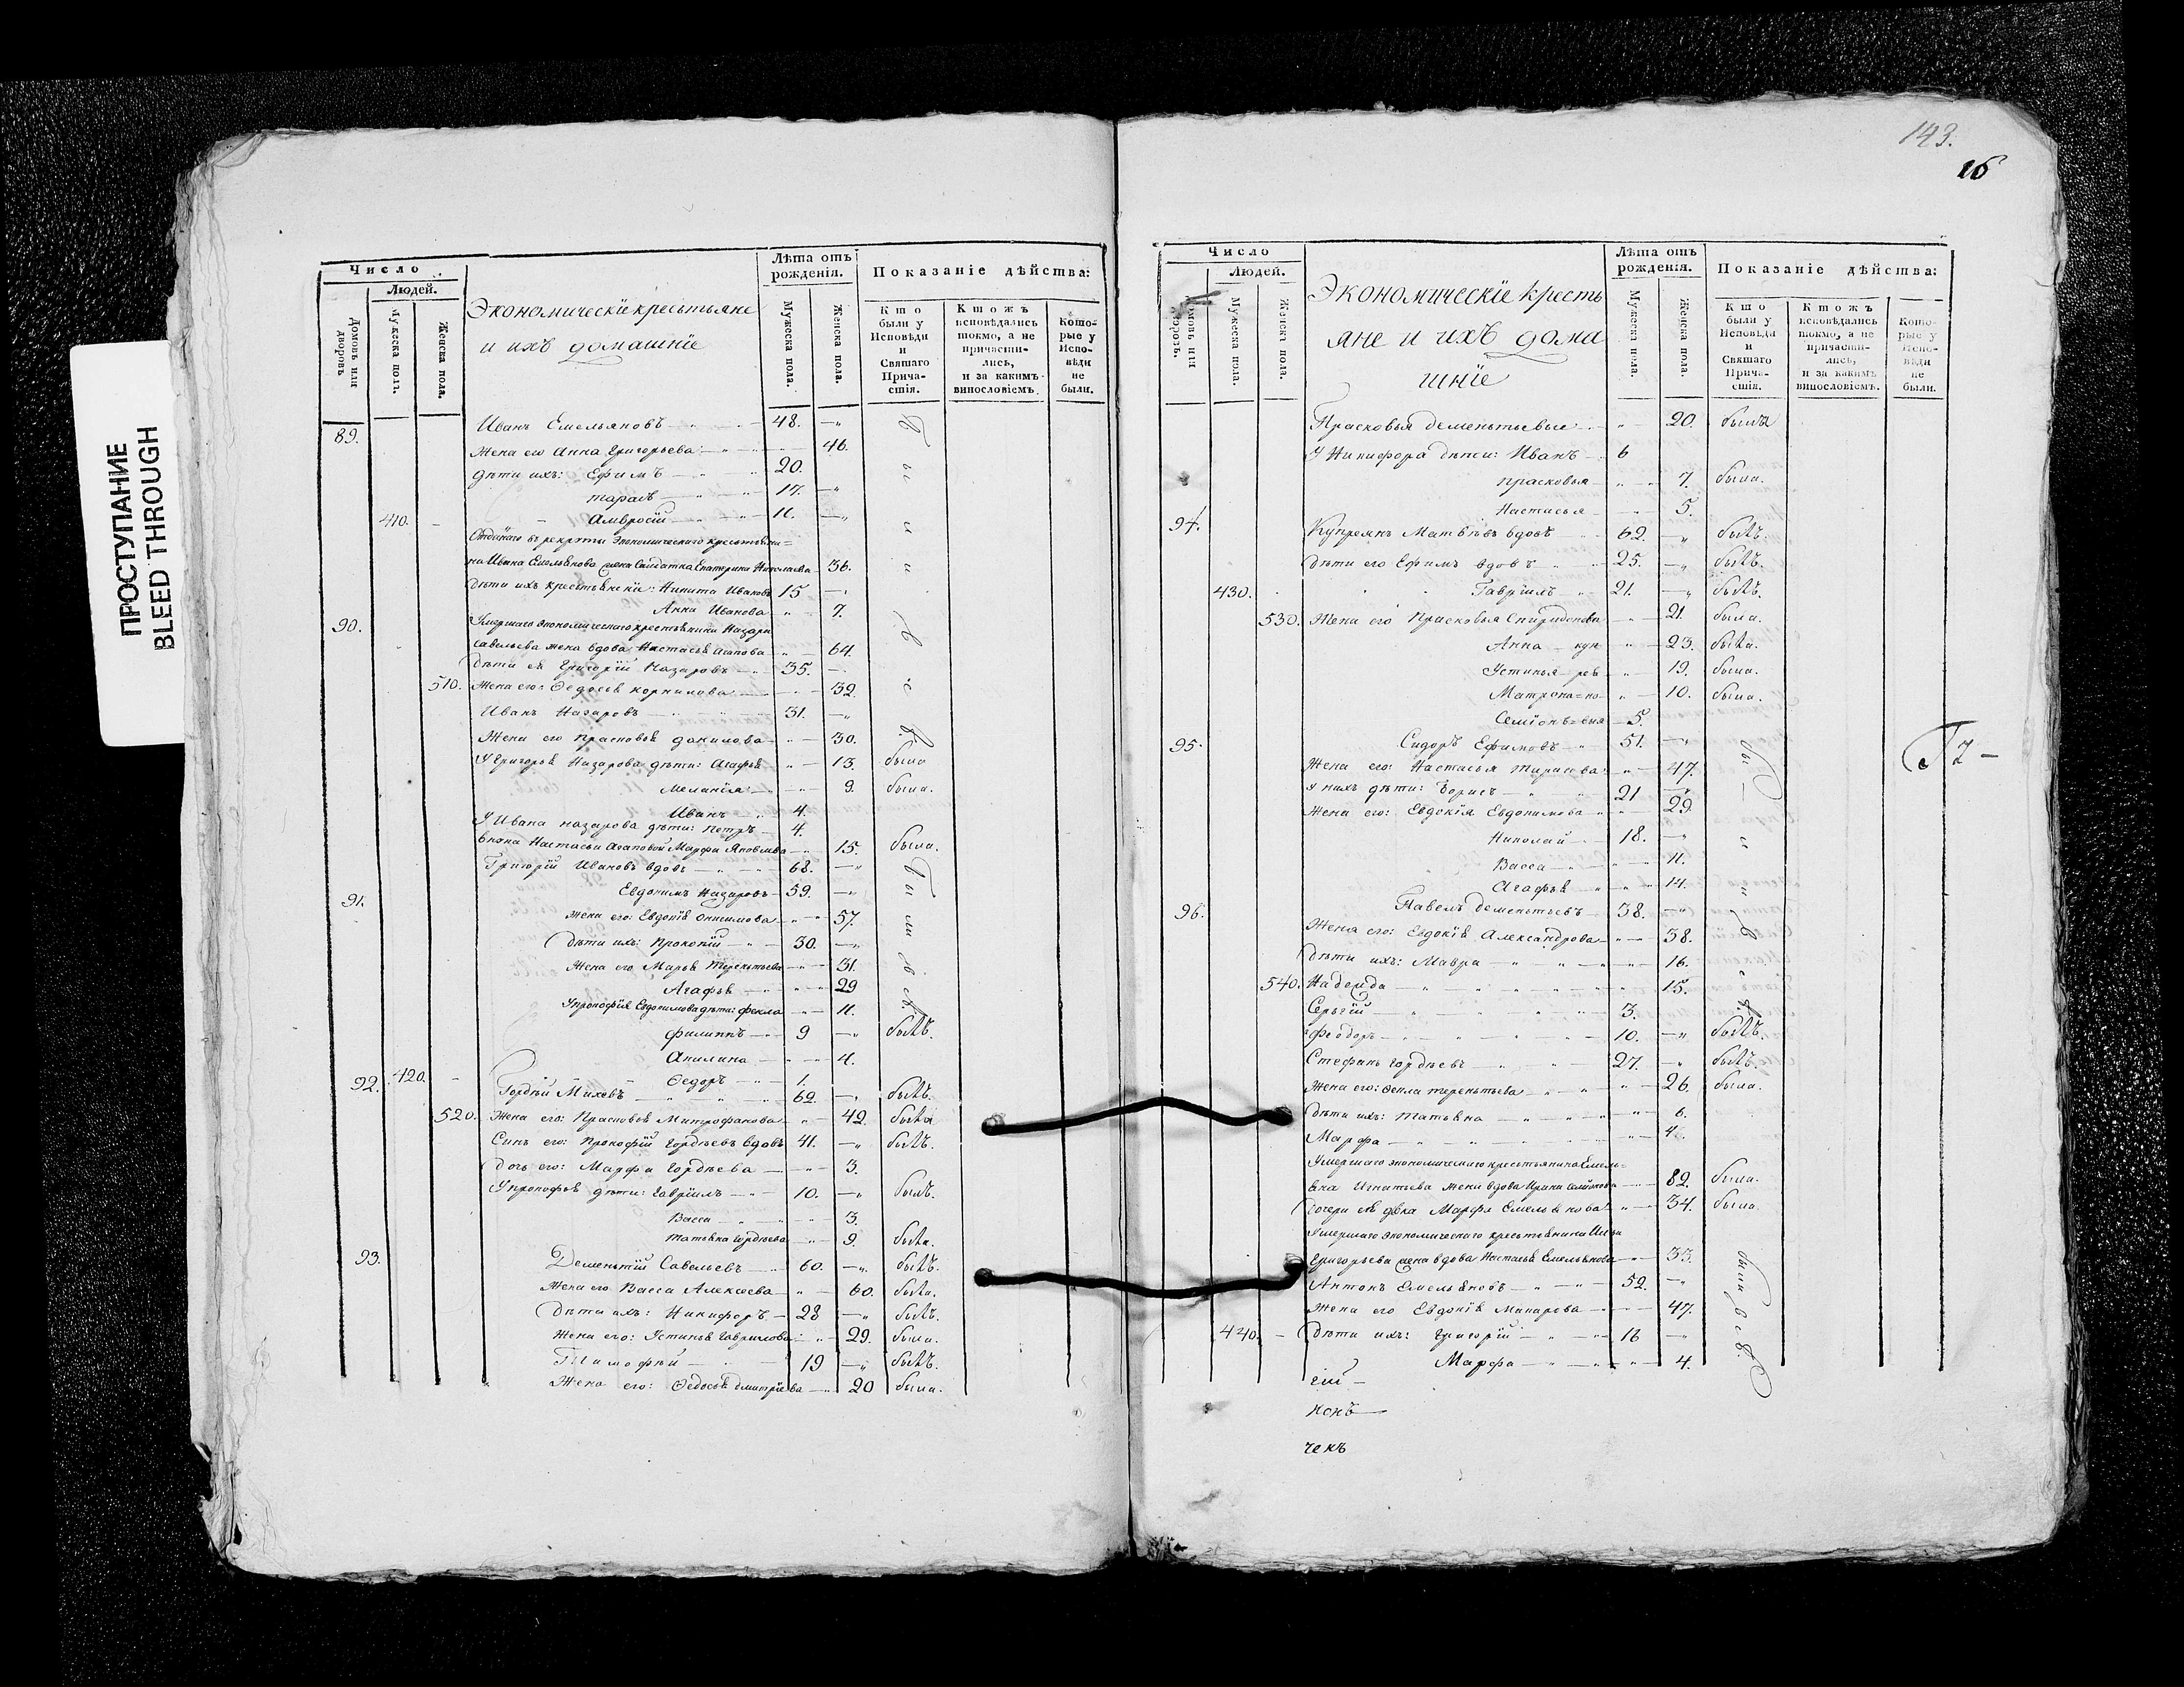 ПРОСТУПАНИЕ
BLEED THROUGH
Число
Людей.
Домовъ или дворовъ
Мужеска полъ.
Женска пола.
Экономическïе крестьяне
и ихъ домашнïе
Лѣта отъ рожденїя.
Мужеска пола.
Женска пола.
Показанїе дѣйства:
Кто были у Исповѣди и Святаго Причастїя.
Ктожъ исповѣдались токмо, а не причастились, и за какимъ винословїемъ.
Которые у Исповѣди не были.
89. Иванъ Емельяновъ 48.
Жена его Анна Григорьева 46.
дѣти ихъ: Ефимъ 20.
Тарасъ 17.
410. Амвросïй 11.
Отданаго въ рекруты Экономическаго крестьяни=
на Ивана Емельянова жена Салдатка Екатерина Николаева 36.
дѣти ихъ крестьянскïе: Никита Ивановъ 15
Анна Иванова 7.
90. Умершаго экономическаго крестьянина Назара
Савельева жена вдова Настасья Агапова 64.
дѣти ея Григорïй Назаровъ 35.
510. Жена его: Ѳедосья корнилова 32.
Иванъ Назаровъ 31.
Жена его Прасковья данилова 30.
У Григорья Назарова дѣти: Агафья 13. была
Меланïя 9. была.
Иванъ 4.
У Ивана назарова дѣти: Петръ 4.
внука Настасьи Агаповой Марфа Яковлева 15. была.
Григорïй Ивановъ вдовъ 68.
91. Евдокимъ Назаровъ 59.
Жена его: Евдокïя Онисимова 57.
дѣти ихъ: Прокопïй 30.
Жена его Марья Терентьева 31.
Агафья 29
У прокофïя Евдокимова дѣти: фекла 11.
филиппъ 9 былъ.
Акилина 4.
420. Ѳедоръ 1.
92. Гордѣй Михевъ 62. былъ.
520. Жена его: Прасковья Митрофанова 42. была
Сынъ его: Прокофïй Гордѣевъ вдовъ 41. былъ.
дочь его: Марфа Гордѣева 3.
У прокофья дѣти: Гаврïилъ 10. былъ.
Васса 3.
Татьяна Гордѣева 9. была.
93. Дементïй Савельевъ 60. былъ.
Жена его Васса Алексѣева 60. была.
дѣти ихъ: Никифоръ 28 былъ.
Жена его: Устинья Гаврилова 29. была.
Тимофѣй 19 былъ.
Жена его: Ѳедосья дмитрïева 20 была.
143.
16
Число
Людей.
Домовъ или дворовъ.
Мужеска пола.
Женска пола.
Экономическïе кресть
яне и ихъ дома
шнïе
Лѣта отъ рожденїя.
Мужеска пола.
Женска пола.
Показанїе дѣйства:
Кто были у Исповѣди и Святаго Причастїя.
Ктожъ исповѣдались токмо, а не причастились, и за какимъ винословїемъ.
Которые у Исповѣди не были.
Прасковья дементьевые 20. была
У Никифора дѣти: Иванъ 6
прасковья 7. была.
Настасья 5.
94. Купреянъ Матвѣевъ вдовъ 62. былъ.
дѣти его Ефимъ вдовъ 25. былъ.
430. Гаврïилъ 21. былъ.
530. Жена его Прасковья Спиридонова 21. была.
Анна куп 23. была.
Устинья рея 19. была.
Матрона=но 10. была.
Семïонъ=выя 5.
95. Сидоръ Ефимовъ 51.
Жена его: Настасья 47.
у нихъ дѣти: Борисъ 21
Жена его: Евдокïя Евдокимова 29.
Николай 18.
Васса 11.
Агафья 14.
96. Павелъ дементьевъ 38.
Жена его: Евдокïя Александрова 38.
дѣти ихъ: Мавра 16.
540. Надежда 15.
Сергïй 3.
феодоръ 10. былъ.
Стефанъ гордѣевъ 27. былъ.
Жена его: Ѳекла терентьева 26. была.
дѣти ихъ: Татьяна 6.
Марфа 4.
Умершаго экономическаго крестьянина Емель=
яна Игнатьева жена вдова Ирина семïонова 82. была.
дочери ея дѣвка Марфа Емельянова 34. была.
Умершаго экономическаго крестьянина Ильи
Григорьева жена вдова Настасья Емельянова 33.
Антонъ Емельяновъ 52.
Жена его Евдокïя Макарова 47.
440. дѣти ихъ: Григорïй 16
Марфа 4.
гïй
конъ
чекъ